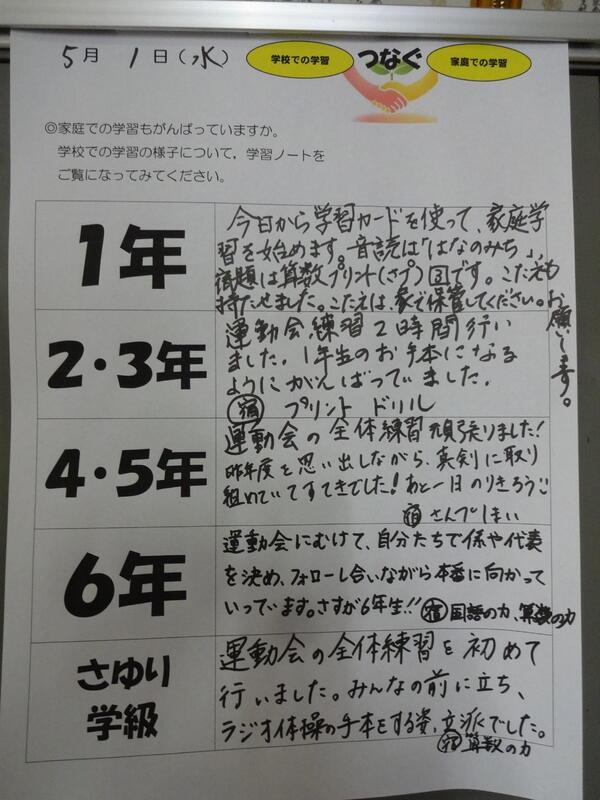 5月 1日(水)
学校での学習 つなぐ 家庭での学習
◎家庭での学習もがんばっていますか。
学校での学習の様子について,学習ノートを
ご覧になってみてください。
1年
今日から学習カードを使って、家庭学
習を始めます。音読は「はなのみち」、
宿題は算数プリント(さプ)③です。こたえも
持たせました。こたえは、家で保管してください。お
願いします。
2・3年
運動会練習2時間行い
ました。1年生のお手本になる
ようにがんばっていました。
宿 プリント ドリル
4・5年
運動会の全体練習頑張りました!
昨年度を思い出しながら、真剣に取り
組んでいてすてきでした!あと一日のりきろう
宿 さんプしまい
6年
運動会にむけて、自分たちで係や代表
を決め、フォローし合いながら本番に向かって
いっています。さすが6年生!! 宿 国語の力、算数の力
さゆり
学級
運動会の全体練習を初めて
行いました。みんなの前に立ち、
ラジオ体操の手本をする姿、立派でした。
宿 算数の力